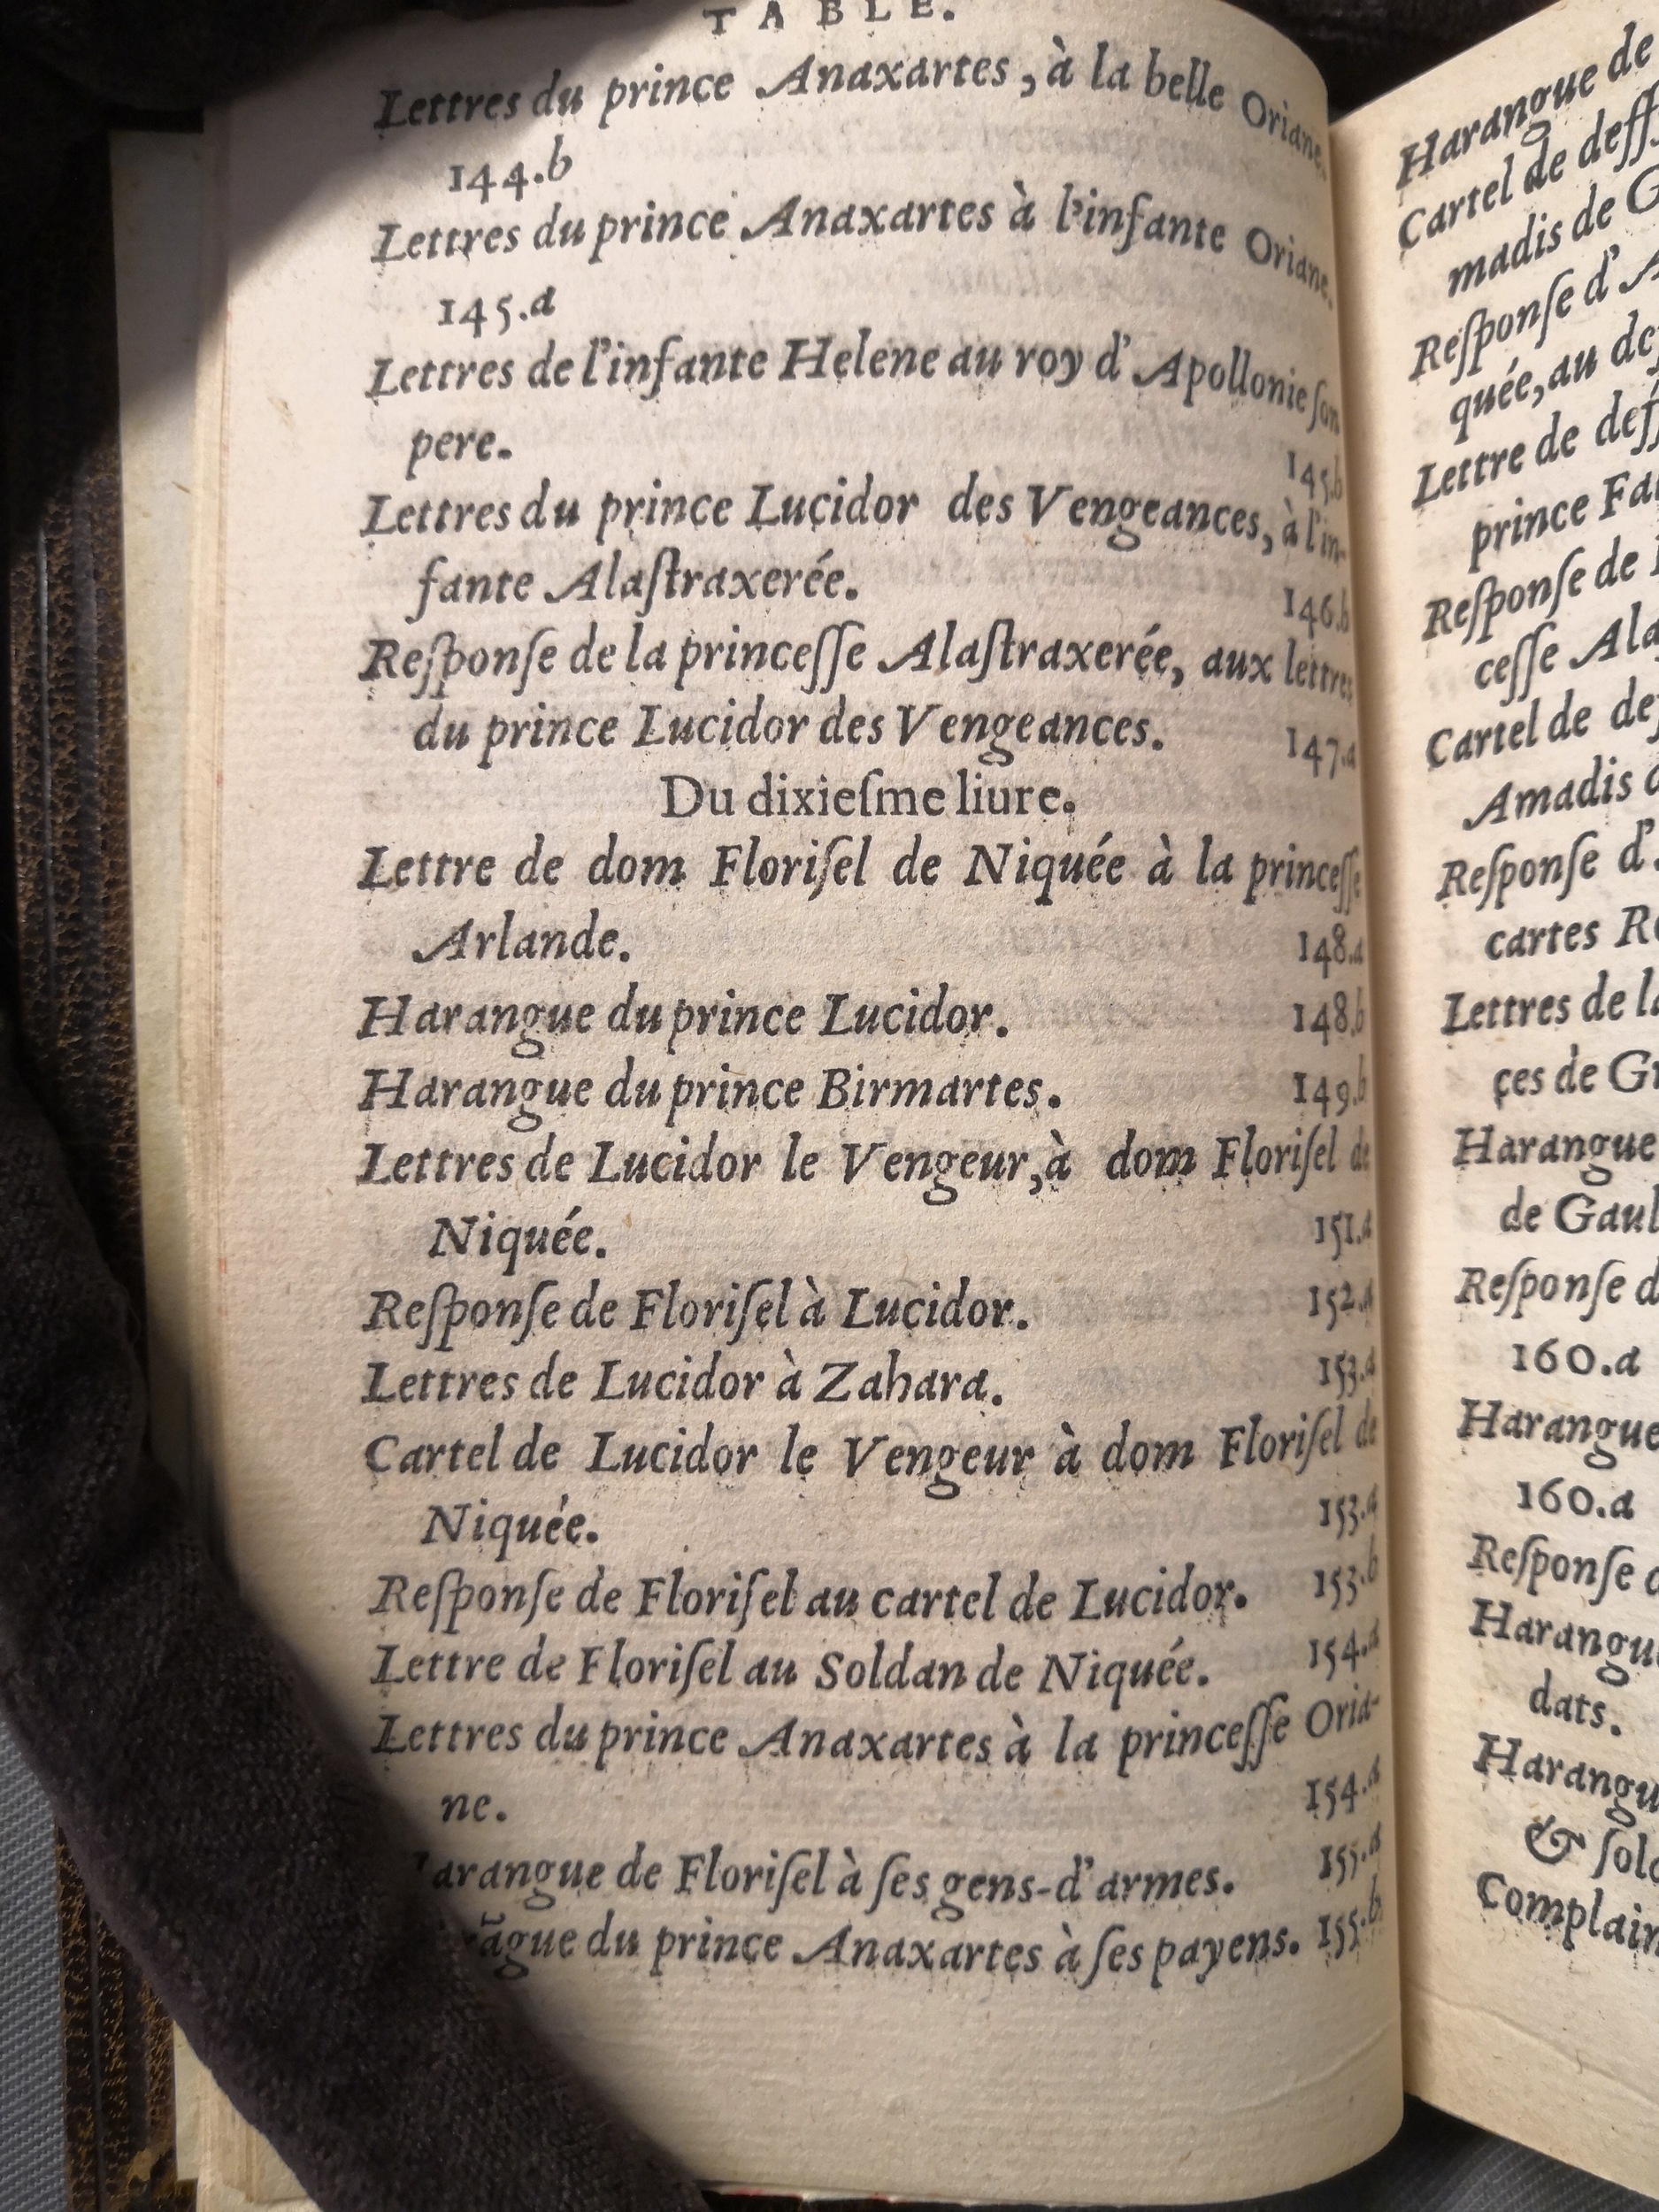 TABLE.
Lettres du prince Anaxartes, à la belle Oriane.
144.b
Lettres du prince Anaxartes à l'infante Oriane.
145.a
Lettres de l'infante Helene au roy d'Apollonie ſon
pere. 145.b
Lettres du prince Lucidor des Vengeances, à l'in-
fante Alaſtraxerée. 146.b
Reſponſe de la princeſſe Alaſtraxerée, aux lettres
du prince Lucidor des Vengeances. 147.a
Du dixieſme liure.
Lettre de dom Floriſel de Niquée à la princeſſe
Arlande. 148.a
Harangue du prince Lucidor. 148.b
Harangue du prince Birmartes. 149.b
Lettres de Lucidor le Vengeur, à dom Floriſel de
Niquée. 151.a
Reſponſe de Floriſel à Lucidor. 152.a
Lettres de Lucidor à Zahara. 153.a
Cartel de Lucidor le Vengeur à dom Floriſel de
Niquée. 153.a
Reſponſe de Floriſel au cartel de Lucidor. 153.b
Lettre de Floriſel au Soldan de Niquée. 154.a
Lettres du prince Anaxartes à la princeſſe Oria-
ne. 154.a
arangue de Floriſel à ſes gens-d'armes. 155.a
rãgue du prince Anaxartes à ſes payens. 155.b
Harangue de
Cartel de
madis de G
Reſponſe d'A
quée, au
Lettre de
prince
Reſponſe de
ceſſe Ala
Cartel de
Amadis
Reſponſe d'
cartes
Lettres de
çes de
Harangue
de Gaul
Reſponſe
160.a
Harangue
160.a
Reſponſe
Harangu
dats.
Harangu
& ſold
Complain